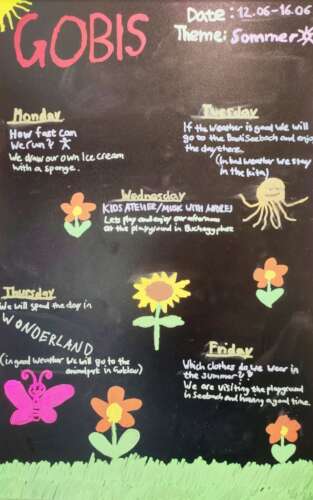 GOBIS
Date: 12.06-16.06
Theme: Sommer
Monday
How fast can
we run?
We draw our own Ice cream
with a sponge.
Tuesday
If the weather is good we will
go to the Badi Seebach and enjoy
the day there.
(in bad weather we stay
in the kita)
Wednesday
KIDS ATELIER/MUSIC WITH
Lets play and enjoy our afternoon
at the playground in
Thursday
We will spend the day in
WONDERLAND
(in good weather we will go to the
in
Friday
Which clothes do we wear in
the summer?
We are visiting the playground
in Seebach and having a good time.